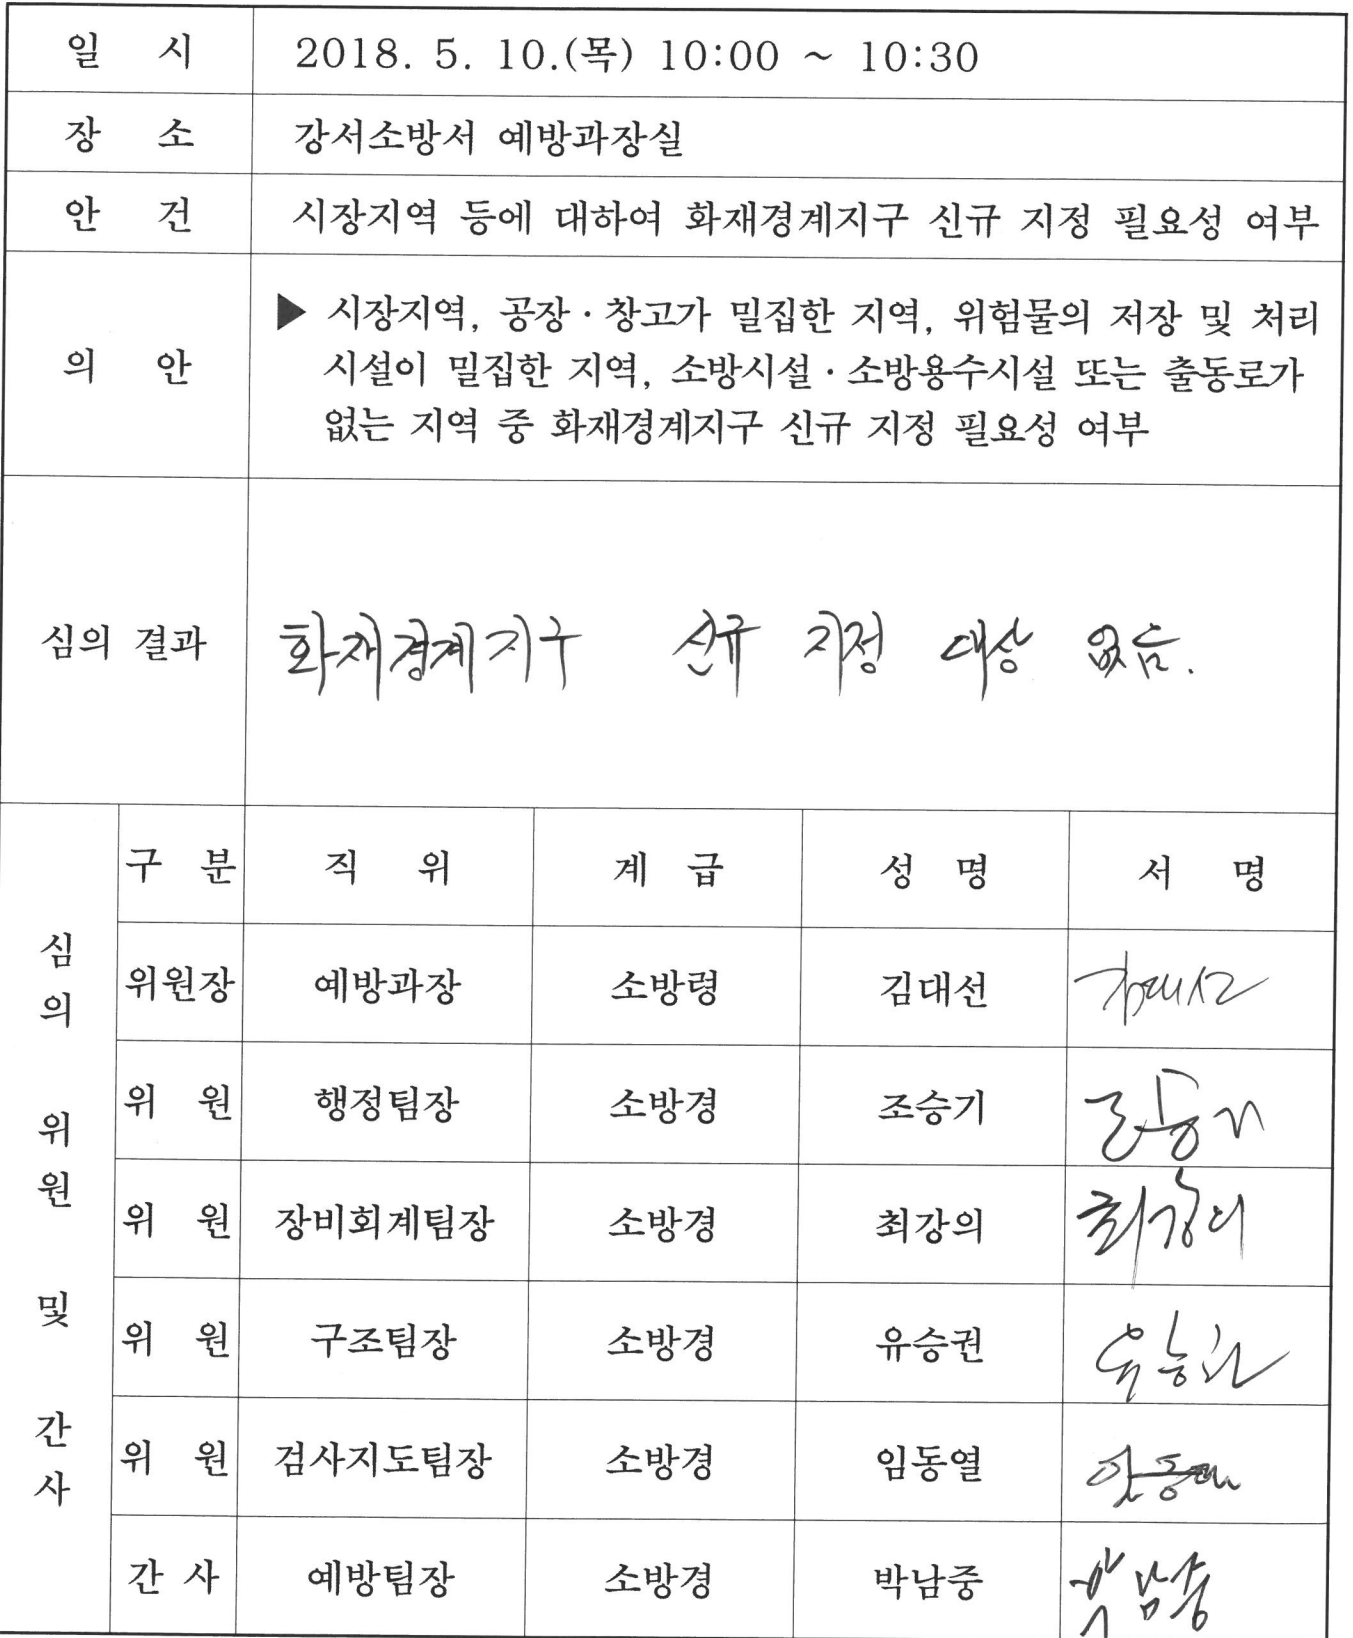 일 시 2018. 5. 10.(목) 10:00 ~ 10:30
장 소 강서소방서 예방과장실
안 건 시장지역 등에 대하여 화재경계지구 신규 지정 필요성 여부
의 안 ▶ 시장지역, 공장·창고가 밀집한 지역, 위험물의 저장 및 처리
시설이 밀집한 지역, 소방시설·소방용수시설 또는 출동로가
없는 지역 중 화재경계지구 신규 지정 필요성 여부
심의 결과 화재경계지구 신규 지정 대상 없음.
심의 위원 및 간사
구 분 직 위 계 급 성 명 서 명
위원장 예방과장 소방령 김대선
위 원 행정팀장 소방경 조승기 조승기
위 원 장비회계팀장 소방경 최강의 최강의
위 원 구조팀장 소방경 유승권 유승권
위 원 검사지도팀장 소방경 임동열
간 사 예방팀장 소방경 박남중 박남중